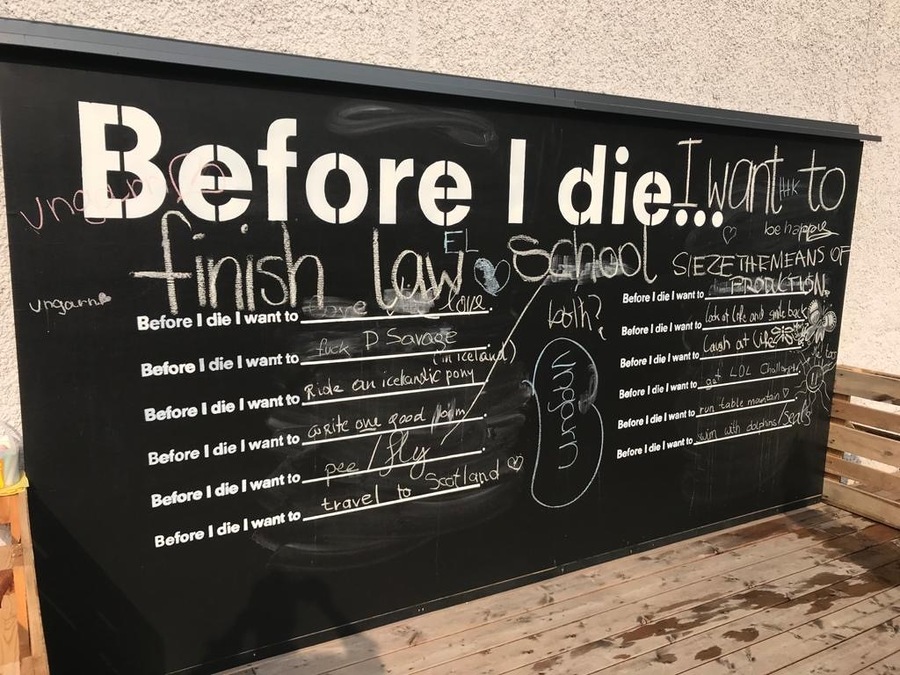 Before I die...
I want to
be happy
ungarn
finish law school
EL
SIEZE THE MEANS OF
PRODUCTION
ungarn
Before I die I want to love
Before I die I want to fuck D Savage
(in iceland)
Before I die I want to Ride an icelantic pony
Before I die I want to write one good poem
Before I die I want to pee/fly
Before I die I want to travel to Scotland
both?
ungarn
Before I die I want to
Before I die I want to look at life and smile back
Before I die I want to Laugh at Life
Before I die I want to get LOL
Before I die I want to run table mountain
Before I die I want to swim with dolphins/seals